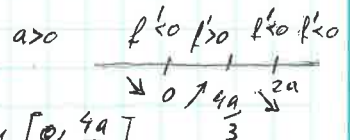 a>0 f'<0 f'>0 f'<0 f'<0
↘ 0 ↗ 4a/3 ↘ 2a
[0, 4a]